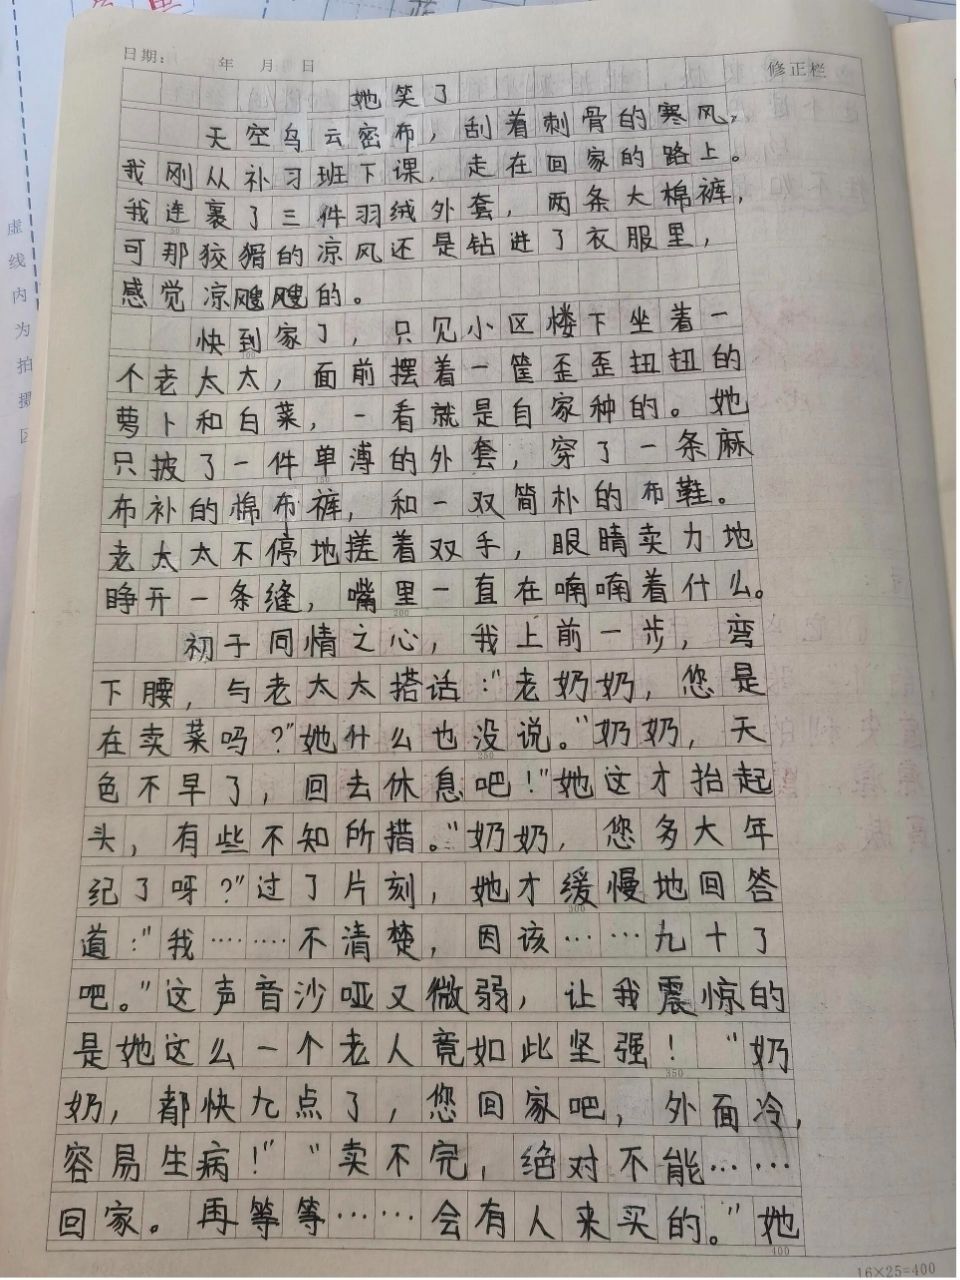 日期: 年 月 日
修正栏
她笑了
天空乌云密布，刮着刺骨的寒风，
我刚从补习班下课，走在回家的路上。
我连裹了三件羽绒外套，两条大棉裤，
可那狡猾的凉风还是钻进了衣服里，
感觉凉飕飕的。
快到家了，只见小区楼下坐着一
个老太太，面前摆着一筐歪歪扭扭的
萝卜和白菜，一看就是自家种的。她
只披了一件单薄的外套，穿了一条麻
布补的棉布裤，和一双简朴的布鞋。
老太太不停地搓着双手，眼睛卖力地
睁开一条缝，嘴里一直在喃喃着什么。
初于同情之心，我上前一步，弯
下腰，与老太太搭话："老奶奶，您是
在卖菜吗？"她什么也没说。"奶奶，天
色不早了，回去休息吧！"她这才抬起
头，有些不知所措。"奶奶，您多大年
纪了呀？"过了片刻，她才缓慢地回答
道："我………不清楚，因该……九十了
吧。"这声音沙哑又微弱，让我震惊的
是她这么一个老人竟如此坚强！"奶
奶，都快九点了，您回家吧，外面冷，
容易生病！""卖不完，绝对不能……
回家。再等等……会有人来买的。"她
16×25=400
虚线内为拍摄区